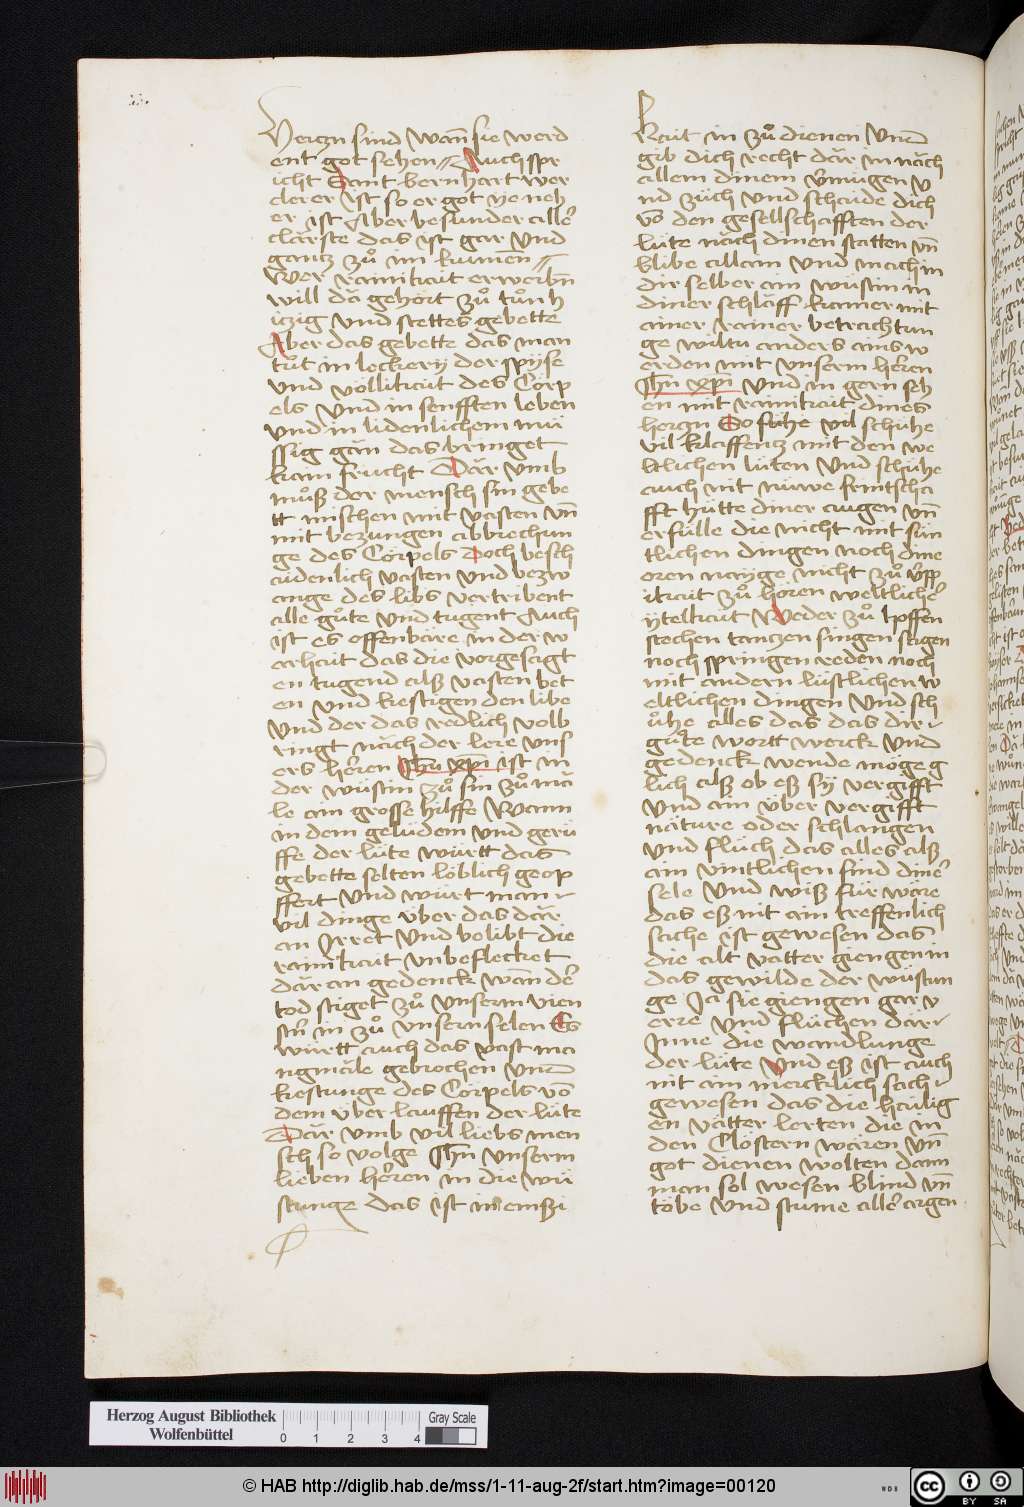 Herczn sind Wann̄ sie werd
ent got sehen Auch spr
icht Sant bernhart wer
clerer ist so er got ye neh
er ist Aber besunder allē
clärste das ist gar Vnd
gantz zuͦ im kumen
Wer rainikait erwerbn̄
will dä gehört zuͦ tuͦn h
itzig Vnd stettes gebette
Aber das gebette das man
tüt in leckery der spyse
Vnd völlikait des Cörp
els Vnd in senfften leben
Vnd in lidenlichem mü
ssig gän das bringet
kain frucht Där Vmb
muͦß der mensch sin gebe
tt mischen mit Vasten Vn̄
mit bezungen abbrechun
ge des Cörpels Doch besch
aidenlich Vasten Vnd bezw
ange des libs Vertribent
alle guͦte Vnd tugent Auch
ist es offenbäre in der w
arhait das die Vorgesagt
en tugend alß Vasten bet
en Vnd kestigen den libe
Vnd der das redlich Volb
ringt näch der lere Vns
ers hēren Jhū xpi ist in
der wüstin zuͦ sin zuͦ mä
le ain grosse hilffe Wann
in dem gelüdem Vnd gerü
ffe der lüte württ das
gebette selten löblich geop
ffert Vnd würt man
Vil dinge über das där
an Irret Vnd belibt die
rainikait Vnbeflecket
där an gedenck wān dē
tod stiget zuͦ Vnserm Vien
stn̄ in zuͦ Vnsern selen Es
württ auch das Vast ma
ngmäle gebrochen Vnd
kestunge des Cörpels Vō
dem über lauffen der lüte
Där Vmb Vil liebs men
sch so volge Jhū Vnserm
lieben hēren in die wü
stunge das ist in ainßi
kait in zuͦ dienen Vnd
gib dich recht där in näch
allem dinem Vmügen V
nd züch Vnd schaide dich
Vō den gesellschafften der
lüte näch dinen statten Vn̄
blibe allain Vnd mach in
dir selber ain wüstin in
diner schläff kamer mit
ainer rainer betrachtun
ge wiltu anders ains w
erden mit Vnserm hēren
Jhū xpī Vnd in gern seh
en mit rainikait dines
herczn So fühe Vil schühe
Vil klaffentz mit den we
ltlichen lüten Vnd schühe
auch nit nüwe frintscha
fft hütte diner augen Vn̄
erfülle die nicht mit sün
tlichen dingen noch dine
oren nayge nicht zuͦ Vpp
ikait zuͦ hören weltlichē
ytelkait Weder zuͦ
stechen tantzen singen sagen
noch springen reden noch
mit andern lüstlichen w
eltlichen dingen Vnd sch
ühe alles das das dir
guͦte wortt werck Vnd
gedenck wende möge g
lich alß ob eß sy Vergifft
Vnd ain über Vergifft
näture oder schlangen
Vnd flüch das alles alß
ain Vintlichen sind dinē
sele Vnd wiß für wäre
das eß nit ain treffenlich
sache ist gewesen das
die alt Vatter giengen in
das gewilde der wüstun
ge Ja sie giengen gar V
erre Vnd flüchen där
Inne die wandlunge
der lüte Vnd eß ist auch
nit ain mercklich sach
gewesen das die hailig
en Vätter lerten die in
den Clöstern wären Vn̄
got dienen wolten dann
man sol wesen blind Vn̄
töbe Vnd stume allē argen
Herzog August Bibliothek
Wolfenbüttel
0 1 2 3 4
Gray Scale
© HAB http://diglib.hab.de/mss/1-11-aug-2f/start.htm?image=00120
WDB
cc
BY SA